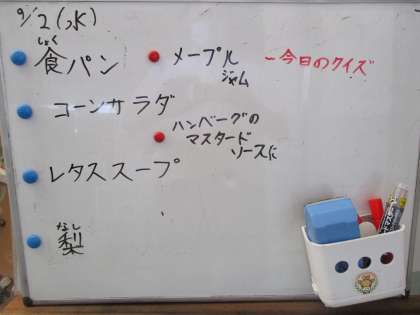 9/2(水)
しょく
食パン
メープル
ジャム
～今日のクイズ
コーンサラダ
ハンバーグの
マスタード
ソースに
レタススープ
なし
梨